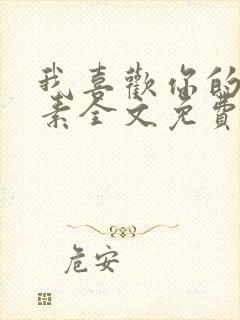 我喜歡你的
素全文免費
危安